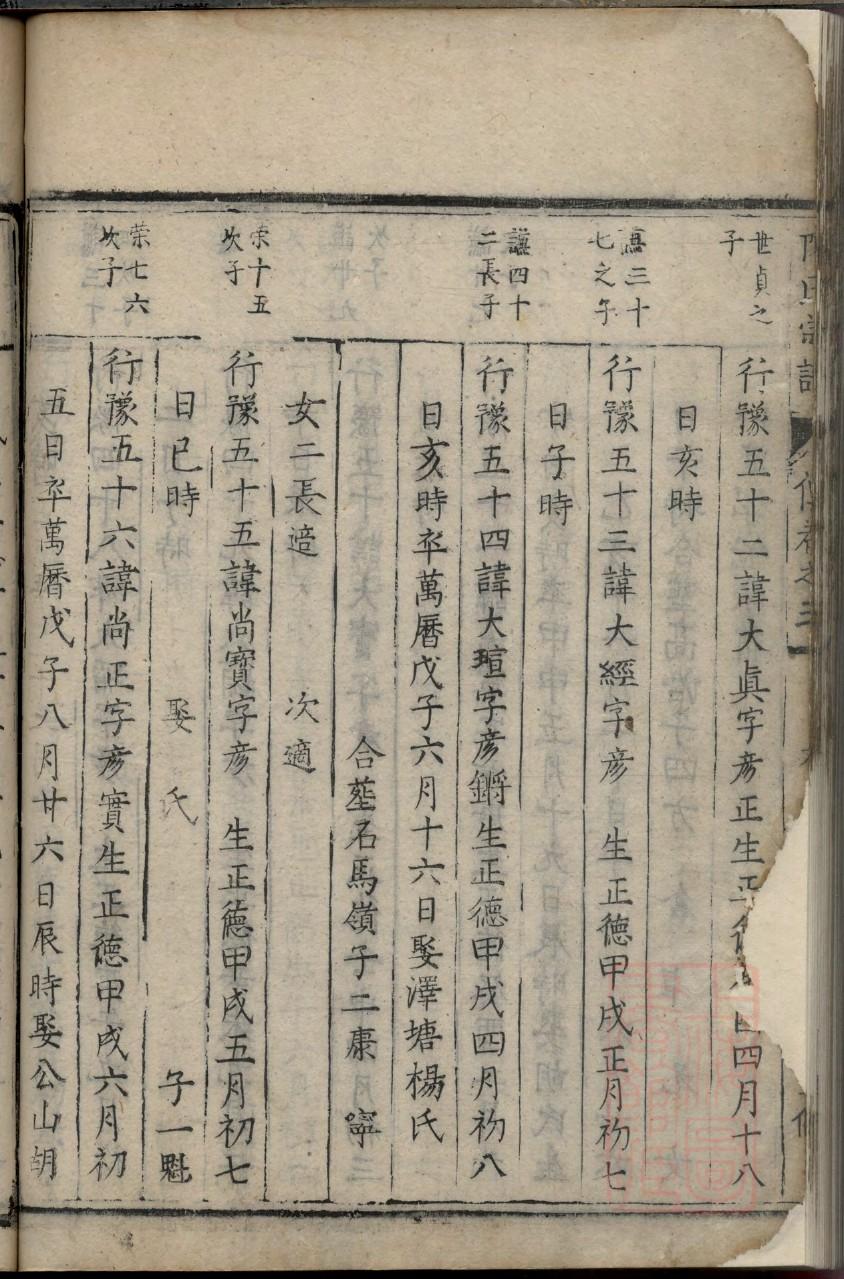 世貞之
子
行豫五十二諱大眞字彥正生正 四月十八
日亥時
三十
七之子
行豫五十三諱大經字彥 生正德甲戌正月初七
日子時
謨四十
二長子
行豫五十四諱大瑄字彥鏘生正德甲戌四月初八
日亥時卒萬曆戊子六月十六日娶澤塘楊氏
合塟石馬嶺子二康 寧
女二長適 次適
荣十五
次子
行豫五十五諱尚寶字彥 生正德甲戌五月初七
日巳時 娶 氏 子一魁
荣七六
次子
行豫五十六諱尚正字彥實生正德甲戌六月初
五日卒萬曆戊子八月廿六日辰時娶公山胡